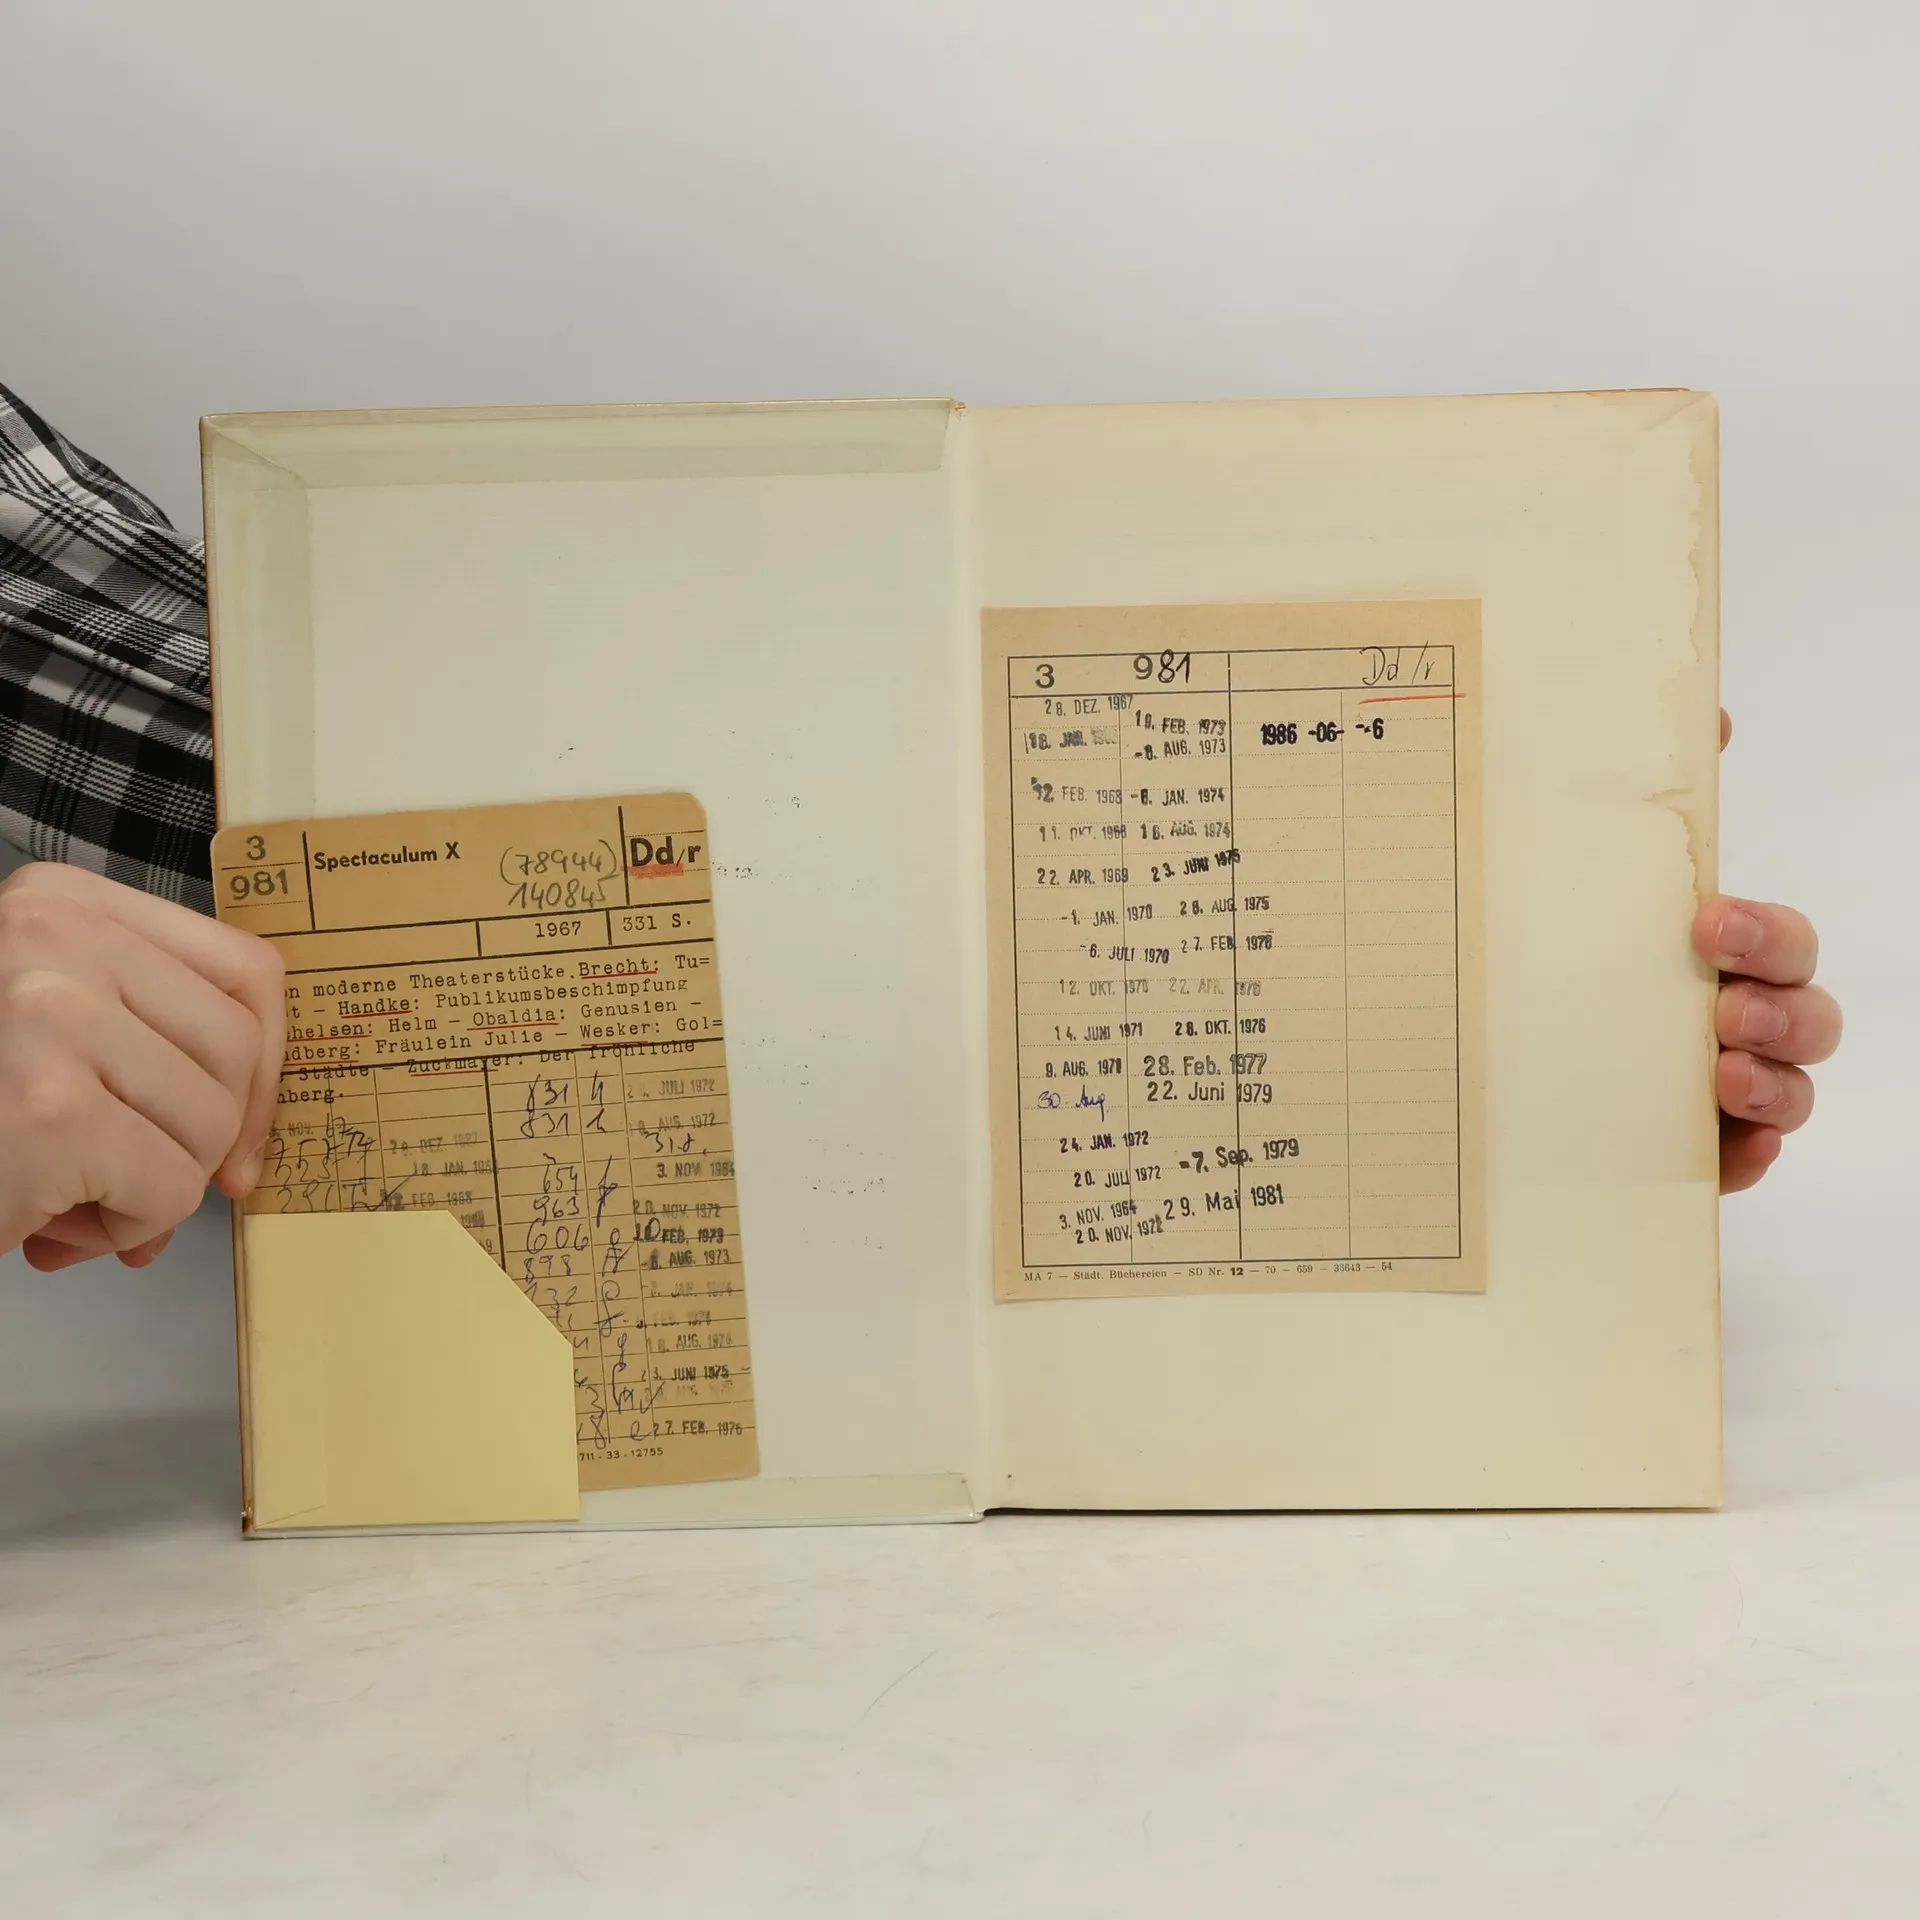 3
981
Spectaculum X
(78944)
140845
Dd/r
1967
331 S.
n moderne Theaterstücke. Brecht: Tu=
t - Handke: Publikumsbeschimpfung
helsen: Helm - Obaldia: Genusien -
dberg: Fräulein Julie - Wesker: Gol=
Städte - Zuckmayer: Der fröhliche
nberg.
831 h JULI 1972
831 h AUG. 1972
31.8.
28. DEZ. 1967
18. JAN. 1968
654 3. NOV 1964
FEB 1968
963 20. NOV. 1972
606 FEB. 1973
898 -8. AUG. 1973
132 JAN. 1974
FEB. 1974
AUG. 1974
JUNI 1975
27. FEB. 1976
711 - 33 - 12755
3 981 Dd/r
28. DEZ. 1967
18. JAN.
12. FEB. 1968
11. OKT. 1968
22. APR. 1969
-1. JAN. 1970
-6. JULI 1970
12. OKT. 1970
14. JUNI 1971
9. AUG. 1971
30. Aug.
24. JAN. 1972
20. JULI 1972
3. NOV. 1964
20. NOV. 1972
19. FEB. 1973
-8. AUG. 1973
-8. JAN. 1974
16. AUG. 1974
23. JUNI 1975
28. AUG. 1975
27. FEB. 1976
22. APR. 1976
28. OKT. 1976
28. Feb. 1977
22. Juni 1979
-7. Sep. 1979
29. Mai 1981
1986 -06- -6
MA 7 — Städt. Büchereien — SD Nr. 12 — 70 — 659 — 33643 — 54